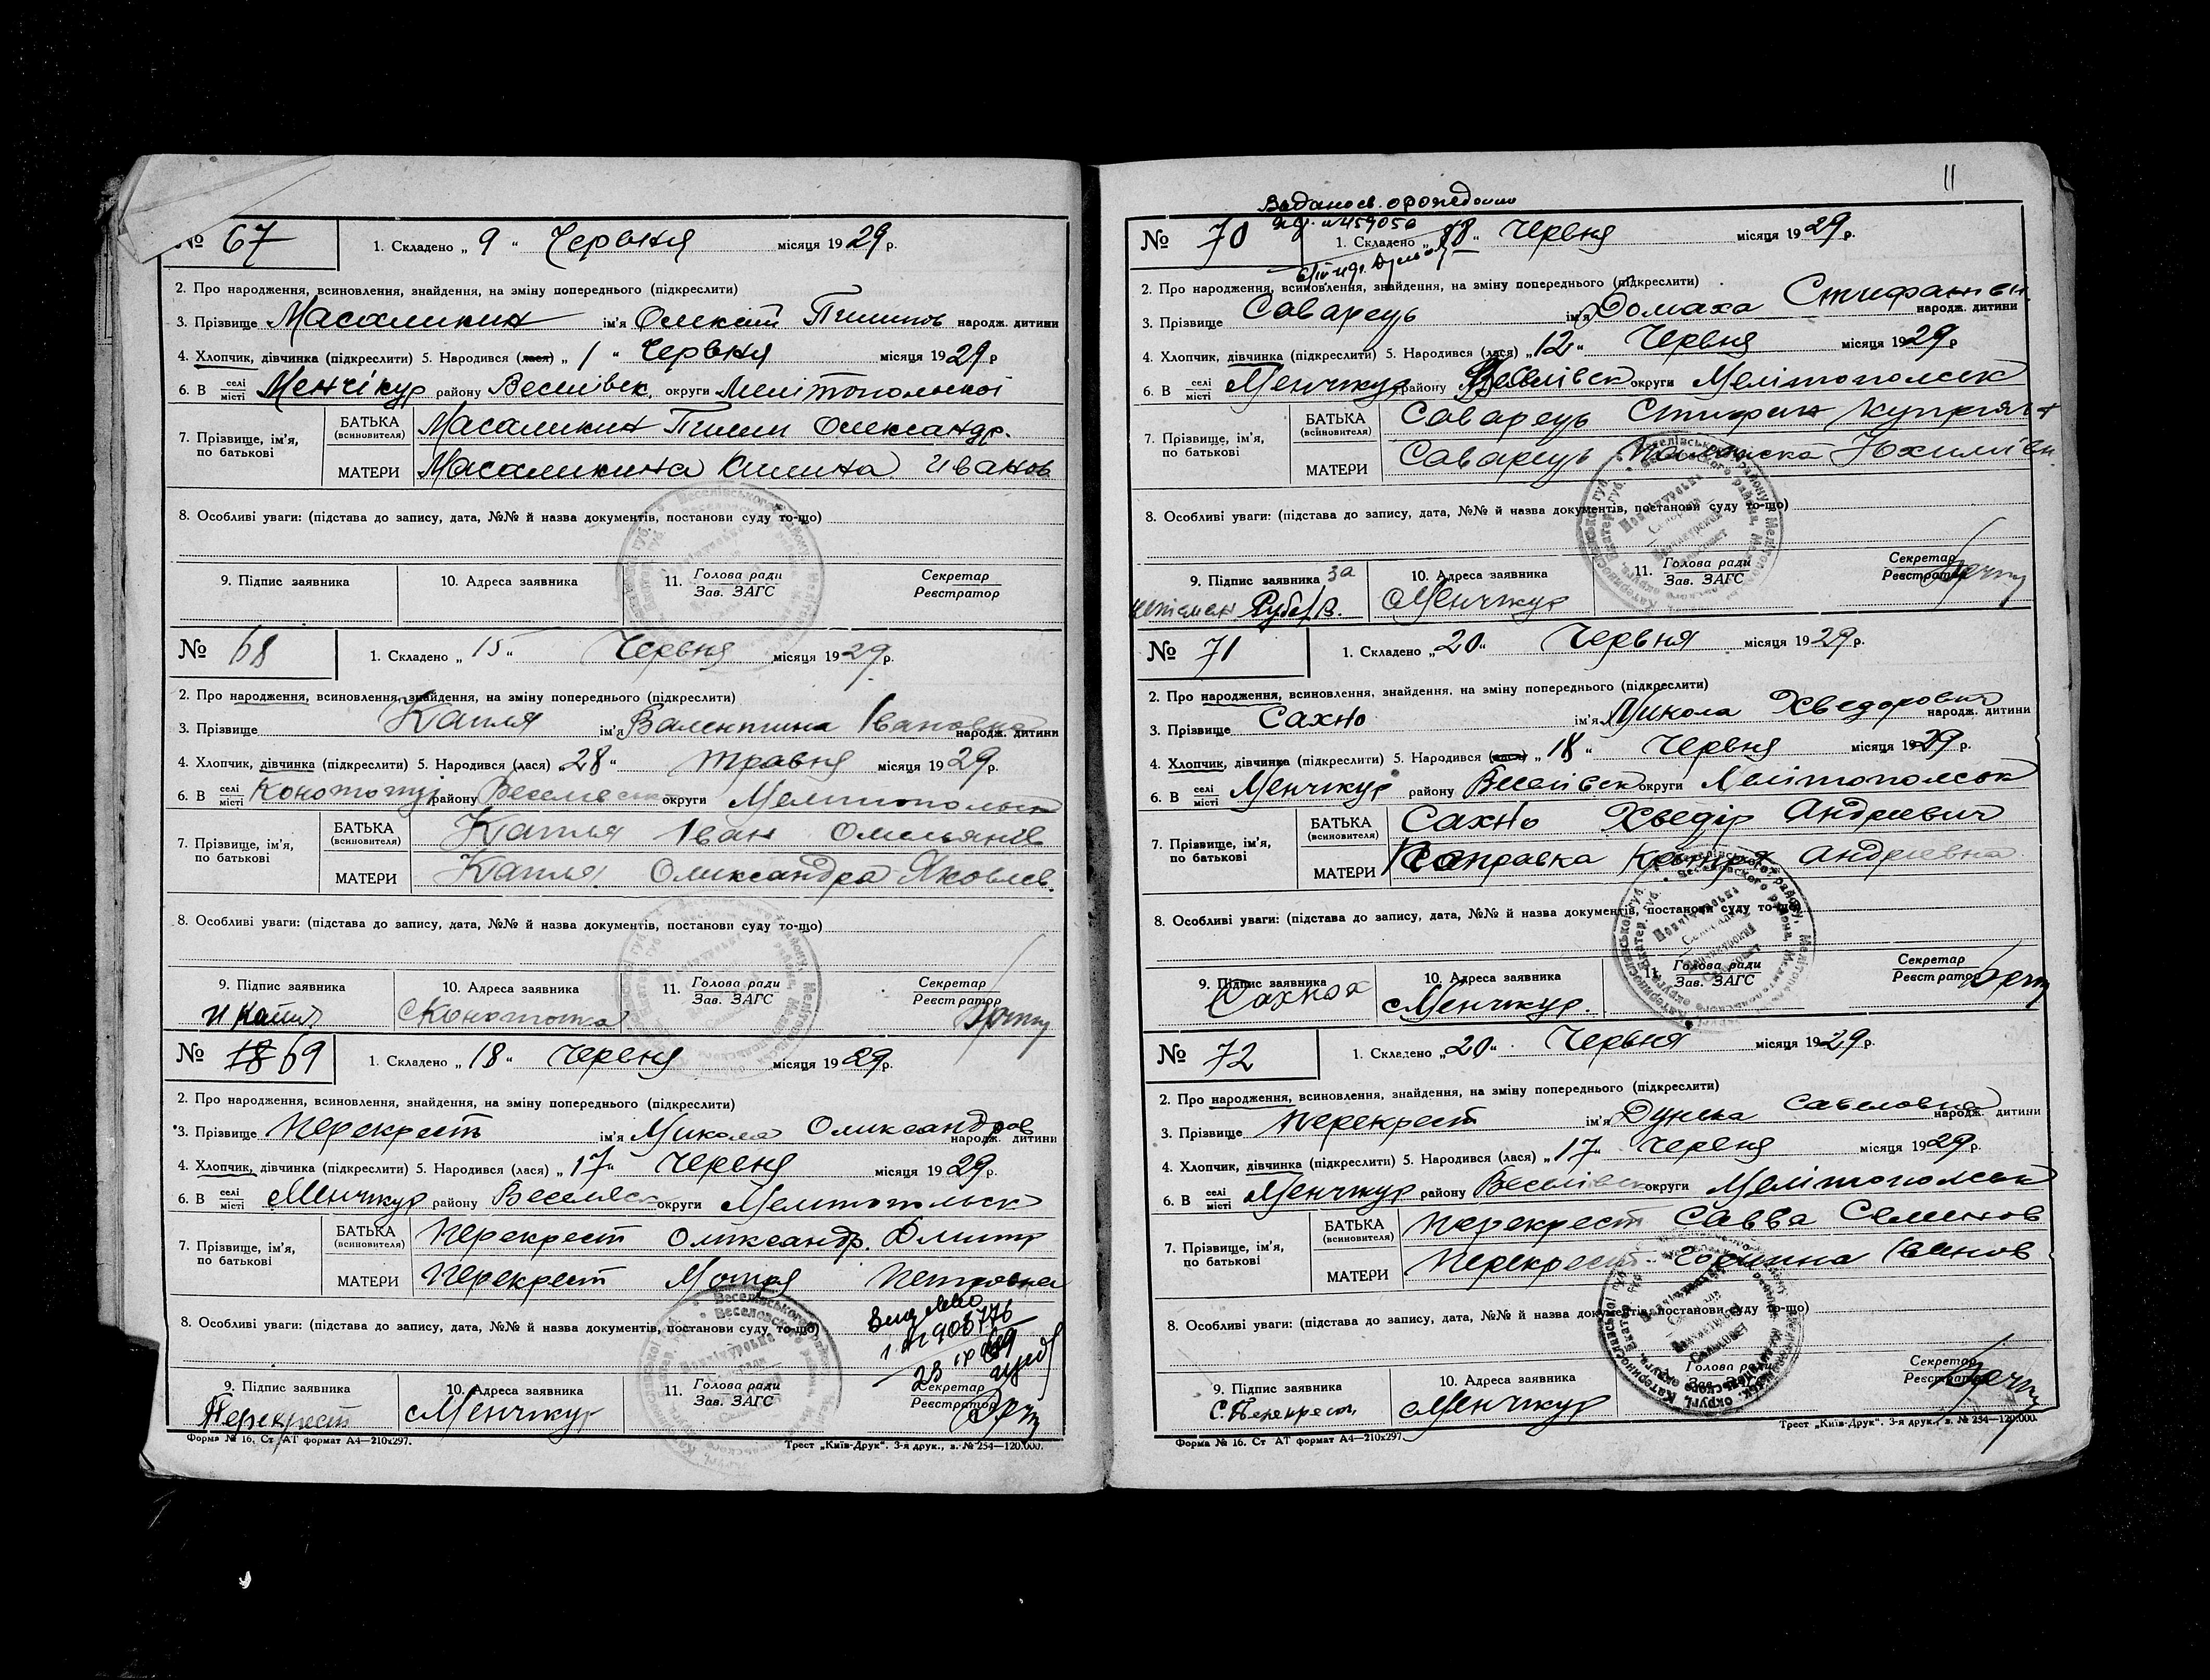 № 67 1. Складено „ 9 " Червня місяця 1929 р.
2. Про народження, всиновлення, знайдення, на зміну попереднього (підкреслити)
3. Прізвище Масаликин ім'я Олексій Пилипов народж. дитини
4. Хлопчик, дівчинка (підкреслити) 5. Народився (лася) „ 1 " Червня місяця 1929 р
6. В селі місті Менчікур району Веселівск. округи Мелітопольскої
7. Прізвище, ім'я, по батькові
БАТЬКА (всиновителя) Масаликин Пилип Олександр.
МАТЕРИ Масаликина Килина Иванов
8. Особливі уваги: (підстава до запису, дата, №№ й назва документів, постанови суду то-що)
9. Підпис заявника 10. Адреса заявника 11. Голова ради Зав. ЗАГС Секретар Реєстратор
№ 68 1. Складено „ 15 " Червня місяця 1929 р.
2. Про народження, всиновлення, знайдення, на зміну попереднього (підкреслити)
3. Прізвище Капля ім'я Валентина Івановна народж. дитини
4. Хлопчик, дівчинка (підкреслити) 5. Народився (лася) „ 28 " травня місяця 1929 р.
6. В селі місті району округи Мелитопольск
7. Прізвище, ім'я, по батькові
БАТЬКА (всиновителя) Капля Іван Омельянів
МАТЕРИ Капля Олександра Яковлев.
8. Особливі уваги: (підстава до запису, дата, №№ й назва документів, постанови суду то-що)
9. Підпис заявника 10. Адреса заявника 11. Голова ради Зав. ЗАГС Секретар Реєстратор
№ 69 1. Складено „ 18 " Череня місяця 1929 р.
2. Про народження, всиновлення, знайдення, на зміну попереднього (підкреслити)
3. Прізвище Перекрест ім'я Микола Олександров народж. дитини
4. Хлопчик, дівчинка (підкреслити) 5. Народився (лася) „ 17 " Череня місяця 1929 р.
6. В селі місті Менчикур району округи Мелитопольск
7. Прізвище, ім'я, по батькові
БАТЬКА (всиновителя) Перекрест Олександр. Дмитр
МАТЕРИ Перекрест Мотря Петровна
8. Особливі уваги: (підстава до запису, дата, №№ й назва документів, постанови суду то-що)
9. Підпис заявника 10. Адреса заявника 11. Голова ради Зав. ЗАГС Секретар Реєстратор
Перекрест Менчикур
Форма № 16. Ст АТ формат А4—210х297. Трест „Київ-Друк". 3-я друк., в. № 254—120.000.
11
№ 70 1. Складено „ 18 " Червня місяця 1929 р.
2. Про народження, всиновлення, знайдення, на зміну попереднього (підкреслити)
3. Прізвище Саварець ім'я Домаха Стифанівн. народж. дитини
4. Хлопчик, дівчинка (підкреслити) 5. Народився (лася) „ 12 " Червня місяця 1929 р
6. В селі місті Менчикур району Веселівск округи Мелітопольск
7. Прізвище, ім'я, по батькові
БАТЬКА (всиновителя) Саварець Стифан
МАТЕРИ Саварець
8. Особливі уваги: (підстава до запису, дата, №№ й назва документів, постанови суду то-що)
9. Підпис заявника за 10. Адреса заявника 11. Голова ради Зав. ЗАГС Секретар Реєстратор
Менчикур
№ 71 1. Складено „ 20 " Червня місяця 1929 р.
2. Про народження, всиновлення, знайдення, на зміну попереднього (підкреслити)
3. Прізвище Сахно ім'я Микола Хведорович народж. дитини
4. Хлопчик, дівчинка (підкреслити) 5. Народився (лася) „ 18 " Червня місяця 1929 р.
6. В селі місті Менчикур району Веселівск округи Мелітопольск
7. Прізвище, ім'я, по батькові
БАТЬКА (всиновителя) Сахно Хведір Андреевич
МАТЕРИ Андреевна
8. Особливі уваги: (підстава до запису, дата, №№ й назва документів, постанови суду то-що)
9. Підпис заявника 10. Адреса заявника 11. Голова ради Зав. ЗАГС Секретар Реєстратор
Менчикур.
№ 72 1. Складено „ 20 " Червня місяця 1929 р.
2. Про народження, всиновлення, знайдення, на зміну попереднього (підкреслити)
3. Прізвище Перекрест ім'я Савеловна народж. дитини
4. Хлопчик, дівчинка (підкреслити) 5. Народився (лася) „ 17 " Череня місяця 1929 р.
6. В селі місті Менчикур району округи Мелітопольськ
7. Прізвище, ім'я, по батькові
БАТЬКА (всиновителя) Перекрест Савва Семенов
МАТЕРИ Перекрест Іванов
8. Особливі уваги: (підстава до запису, дата, №№ й назва документів, постанови суду то-що)
9. Підпис заявника 10. Адреса заявника Голова ради Зав. ЗАГС Секретар Реєстратор
С. Перекрест Менчикур
Форма № 16. Ст АТ формат А4—210х297. Трест „Київ-Друк". 3-я друк., в. № 254—120.000.